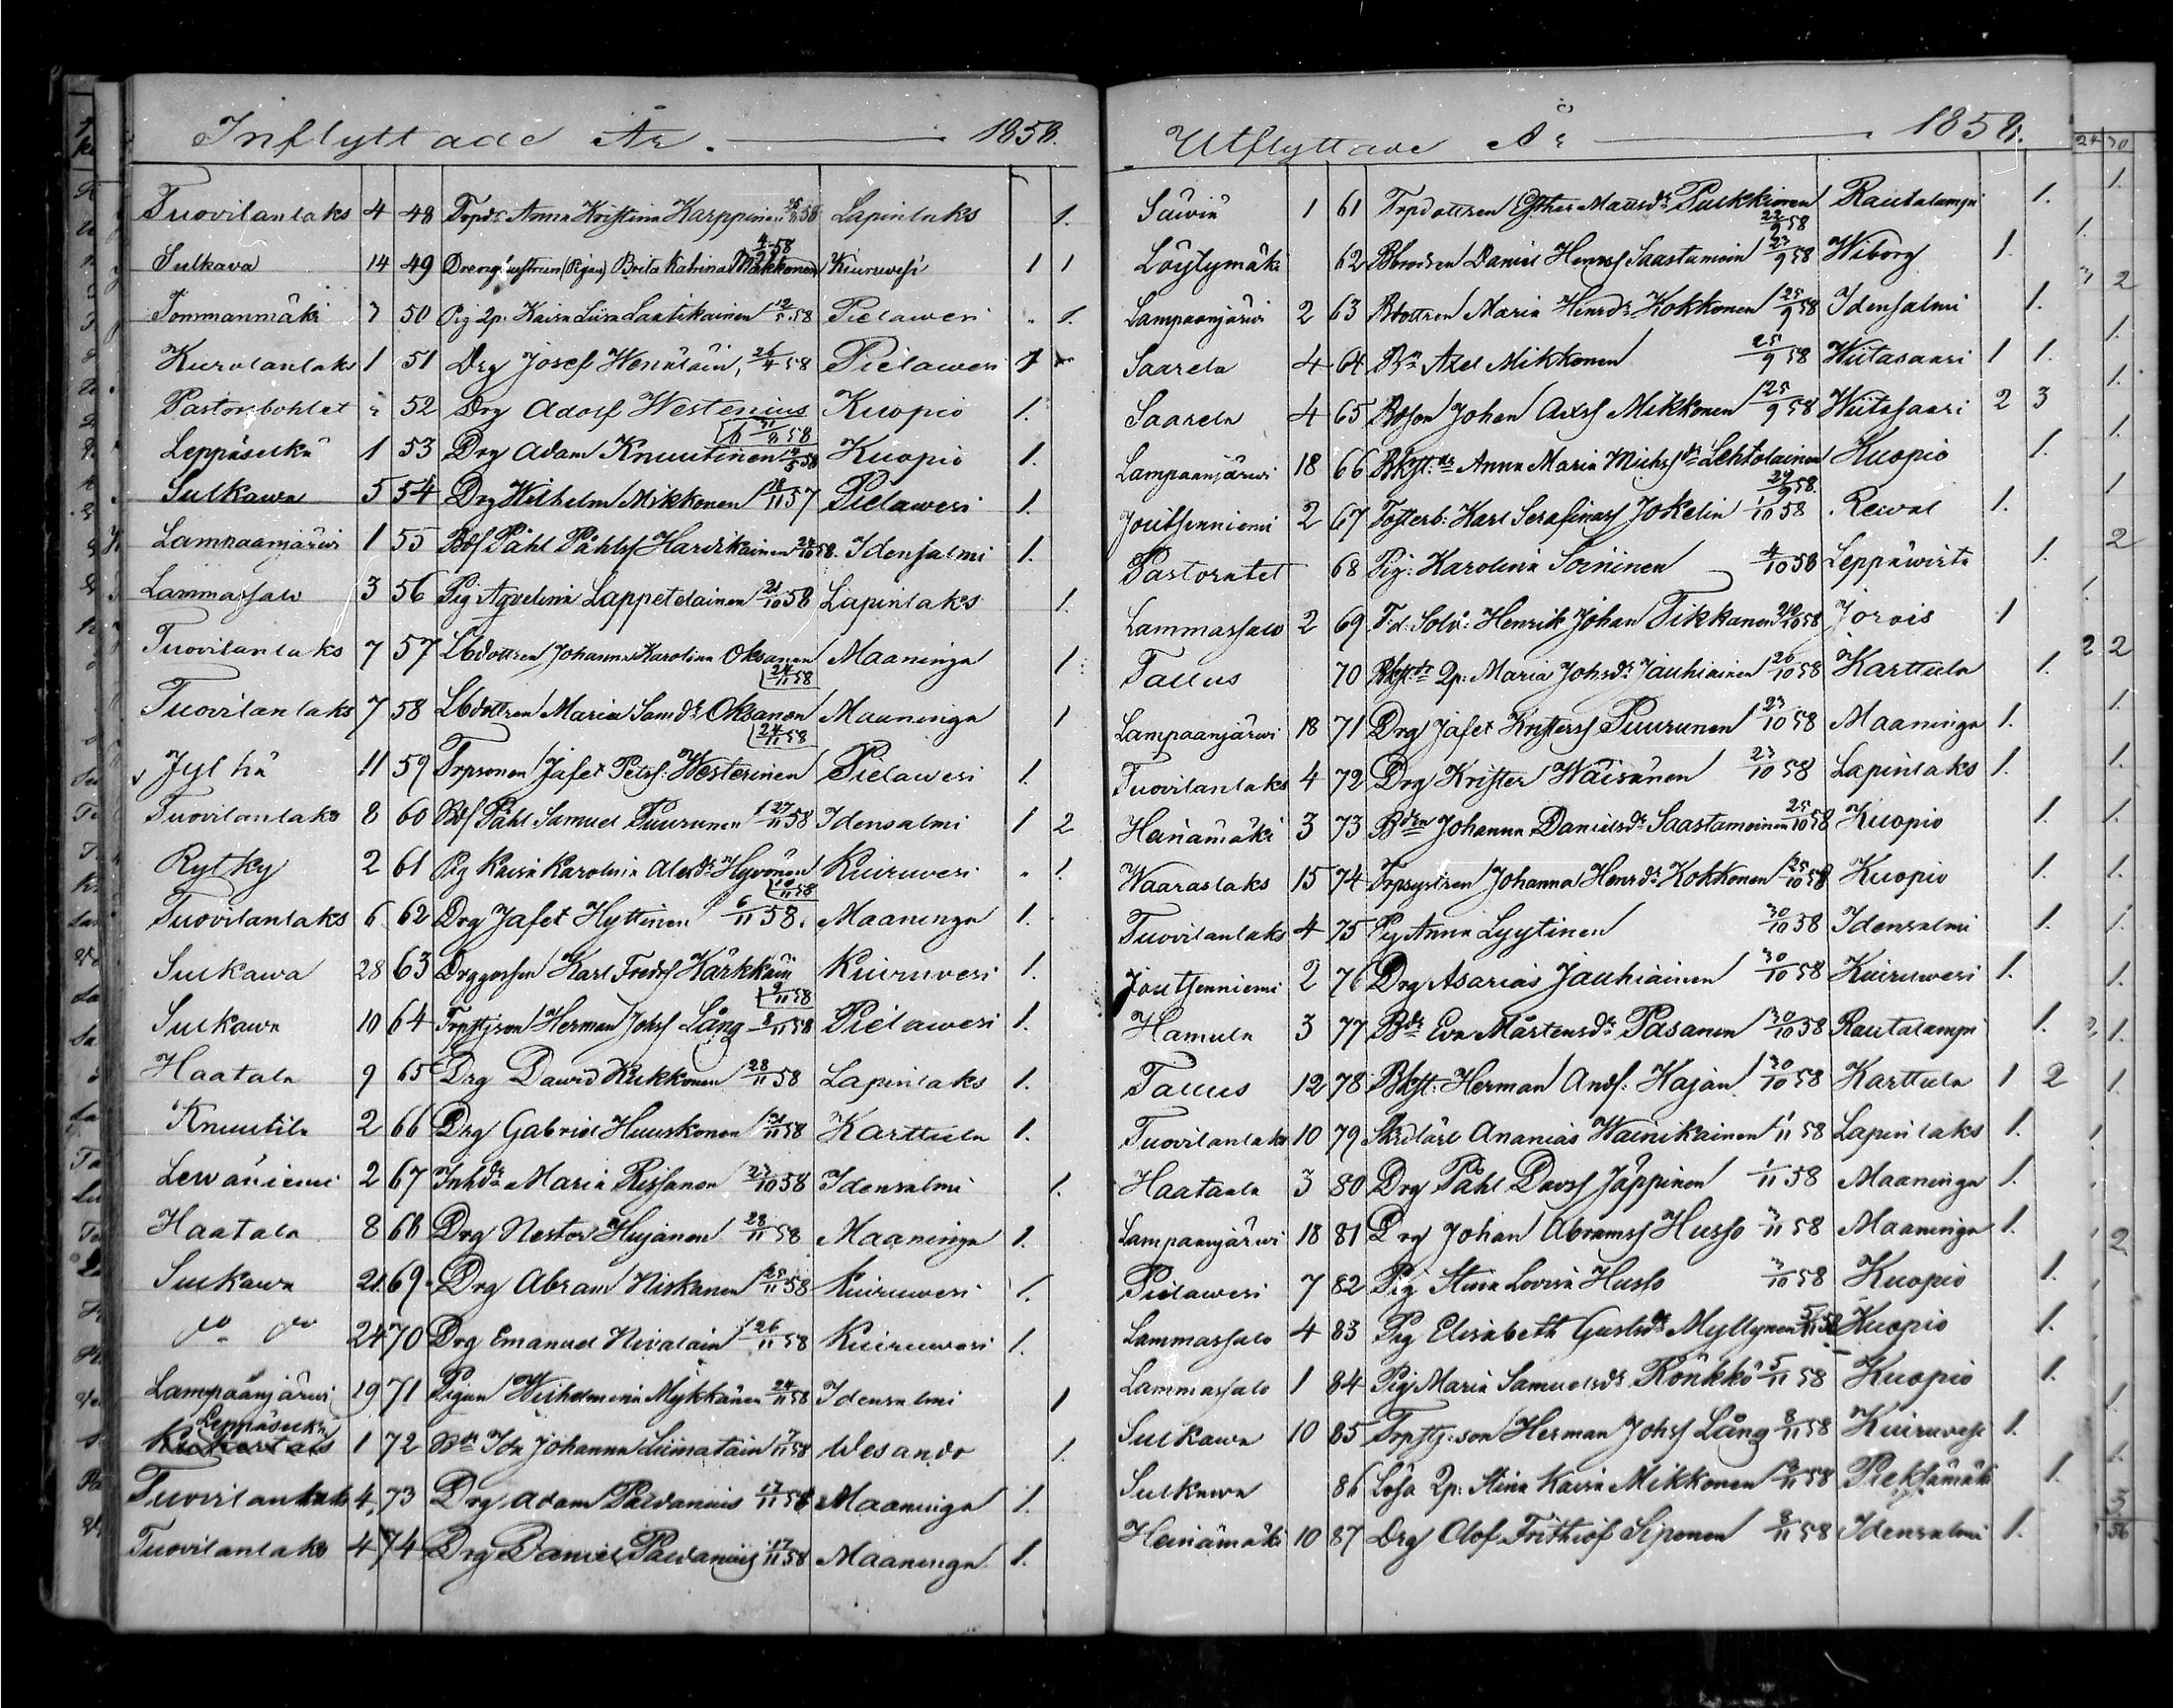 Inflyttade År. 1858.
Tuovilanlaks 4 48 Trpdr Anna Kristina Karppinen 58 Lapinlaks 1.
Sulkava 14 49 (Pigan) Brita Katrina Makkonen 58 Kiuruvesi 1 1
Tommanmäki 7 50 Pig 2p. Kaisa Liisa Laatikainen 12/5 58 Pielawesi 1.
Kurolanlaks 1 51 Drg Josef Wenäläin, 26/4 58 Pielawesi 1
Pastorsbohlet 52 Drg Adolf Westenius Kuopio 1.
58
Leppäselkä 1 53 Drg Adam Knuutinen 58 Kuopio 1.
Sulkawa 5 54 Drg Wilhelm Mikkonen 18/11 57 Pielawesi 1.
Lampaanjärwi 1 55 Bdf Påhl Påhlsf Hardikainen 24/10 58. Idensalmi 1.
Lammassalo 3 56 Pig Agvelina Lappetelainen 21/10 58 Lapinlaks 1.
Tuovilanlaks 7 57 Lbdottren Johanna Karolina Oksanen Maaninga 1
24/11 58
Tuovilanlaks 7 58 Lbdottren Maria Samdr Oksanen Maaninga 1
24/11 58
Jylhä 11 59 Trpsonen Jafet Petsf: Westerinen Pielawesi 1.
Tuovilanlaks 8 60 Bdf Påhl Samuel Puurunen 27/11 58 Idensalmi 1 2
Rytky 2 61 Pig Kaisa Karolina Alexdr Hyvönen Kiuruwesi 1.
10/11 58
Tuovilanlaks 6 62 Drg Jafet Hyttinen 6/11 58. Maaninga 1.
Sulkawa 28 63 Karl Fredsf Kärkkäin Kiuruvesi 1.
9/11 58
Sulkawa 10 64 Herman Johsf Lång 8/11 58 Pielawesi 1.
Haatala 9 65 Drg Dawid Kukkonen 28/11 58 Lapinlaks 1.
Knuutila 2 66 Drg Gabriel Huuskonen 21/11 58 Karttula 1.
Lewäniemi 2 67 Inhdr Maria Rissanen 23/10 58 Idensalmi 1.
Haatala 8 68 Drg Nestor Hujanen 28/11 58 Maaninga 1.
Sulkawa 21 69 Drg Abram Niskanen 25/11 58 Kiuruwesi 1.
do do 24 70 Drg Emanuel Nivalain 26/11 58 Kiuruwesi 1.
Lampaanjärwi 19 71 Pigan Wilhelmina Mykkänen 24/11 58 Idensalmi 1
Leppäselkä
1 72 Ida Johanna Liimatain 11 58 Wesando 1.
Tuovilanlaks 4 73 Drg Adam Paldanius 17/11 58 Maaninga 1.
Tuovilanlaks 4 74 Drg Daniel Paldanius 17/11 58 Maaninga 1.
Utflyttade År 1858.
Säwiä 1 61 Trpdottren Esther Mattsdr Pulkkinen Rautalampi 1.
22/9 58
Löytymäki 62 Bbrodren Daniel Henrsf Saastamoin 23/9 58 Wiborg 1.
Lampaanjärwi 2 63 Bdottren Maria Henrdr Kokkonen 25/9 58 Idensalmi 1.
Saarela 4 64 Axel Mikkonen 25/9 58 Wiitasaari 1 1.
Saarela 4 65 Bdson Johan Axlsf Mikkonen 25/9 58 Wiitasaari 2 3
Lampaanjärwi 18 66 Anna Maria Michsfdr Lehtolainen Kuopio 1.
29/9 58.
Joutsenniemi 2 67 Fosterb: Karl Serafinasf Jokelin 1/10 58 Rewal 1.
Pastoratet 68 Pig: Karolina Soininen 4/10 58 Leppäwirta 1.
Lammassalo 2 69 F:d: Sold: Henrik Johan Tikkanen 20/10 58 Jorois 1
Tallus 70 2p: Maria Johsdr Jauhiainen 20/10 58 Karttula 1.
Lampaanjärwi 18 71 Drg Jafet Kristersf Puurunen 23/10 58 Maaninga 1.
Tuovilanlaks 4 72 Drg Krister Wäisänen 23/10 58 Lapinlaks 1.
Hainämäki 3 73 Johanna Danielsdr Saastamoinen 25/10 58 Kuopio 1.
Waaraslaks 15 74 Trpsystren Johanna Henrdr Kokkonen 25/10 58 Kuopio 1.
Tuovilanlaks 4 75 Pig Anna Lyytinen 30/10 58 Idensalmi 1.
Joutsenniemi 2 76 Drg Asarias Jauhiainen 30/10 58 Kiuruwesi 1.
Hamula 3 77 Bdr Eva Mårtensdr Pasanen 30/10 58 Rautalampi 1.
Tallus 12 78 Bkft: Herman Andf: Hajan 30/10 58 Karttula 1 2
Tuovilanlaks 10 79 Skrdlärl Ananias Wainikainen 1/11 58 Lapinlaks 1.
Haatala 3 80 Drg Påhl Davsf Jäppinen 1/11 58 Maaninga 1.
Lampaanjärwi 18 81 Drg Johan Abramsf Husso 3/11 58 Maaninga 1.
Pielawesi 7 82 Pig Stina Lovisa Husso 3/10 58 Kuopio 1.
Lammassalo 4 83 Pig Elisabeth Gustsdr Myllynen 5/11 58 Kuopio 1.
Lammassalo 1 84 Pig Maria Samuelsdr Rönkkö 5/11 58 Kuopio 1.
Sulkawa 10 85 Trpstj:son Herman Johsf Lång 8/11 58 Kiuruvesi 1.
Sulkawa 86 Lösa 2p: Stina Kaisa Mikkonen 11 58 Pieksämäki 1.
Heinämäki 10 87 Drg Olof Frithiof Siponen 8/11 58 Idensalmi 1.